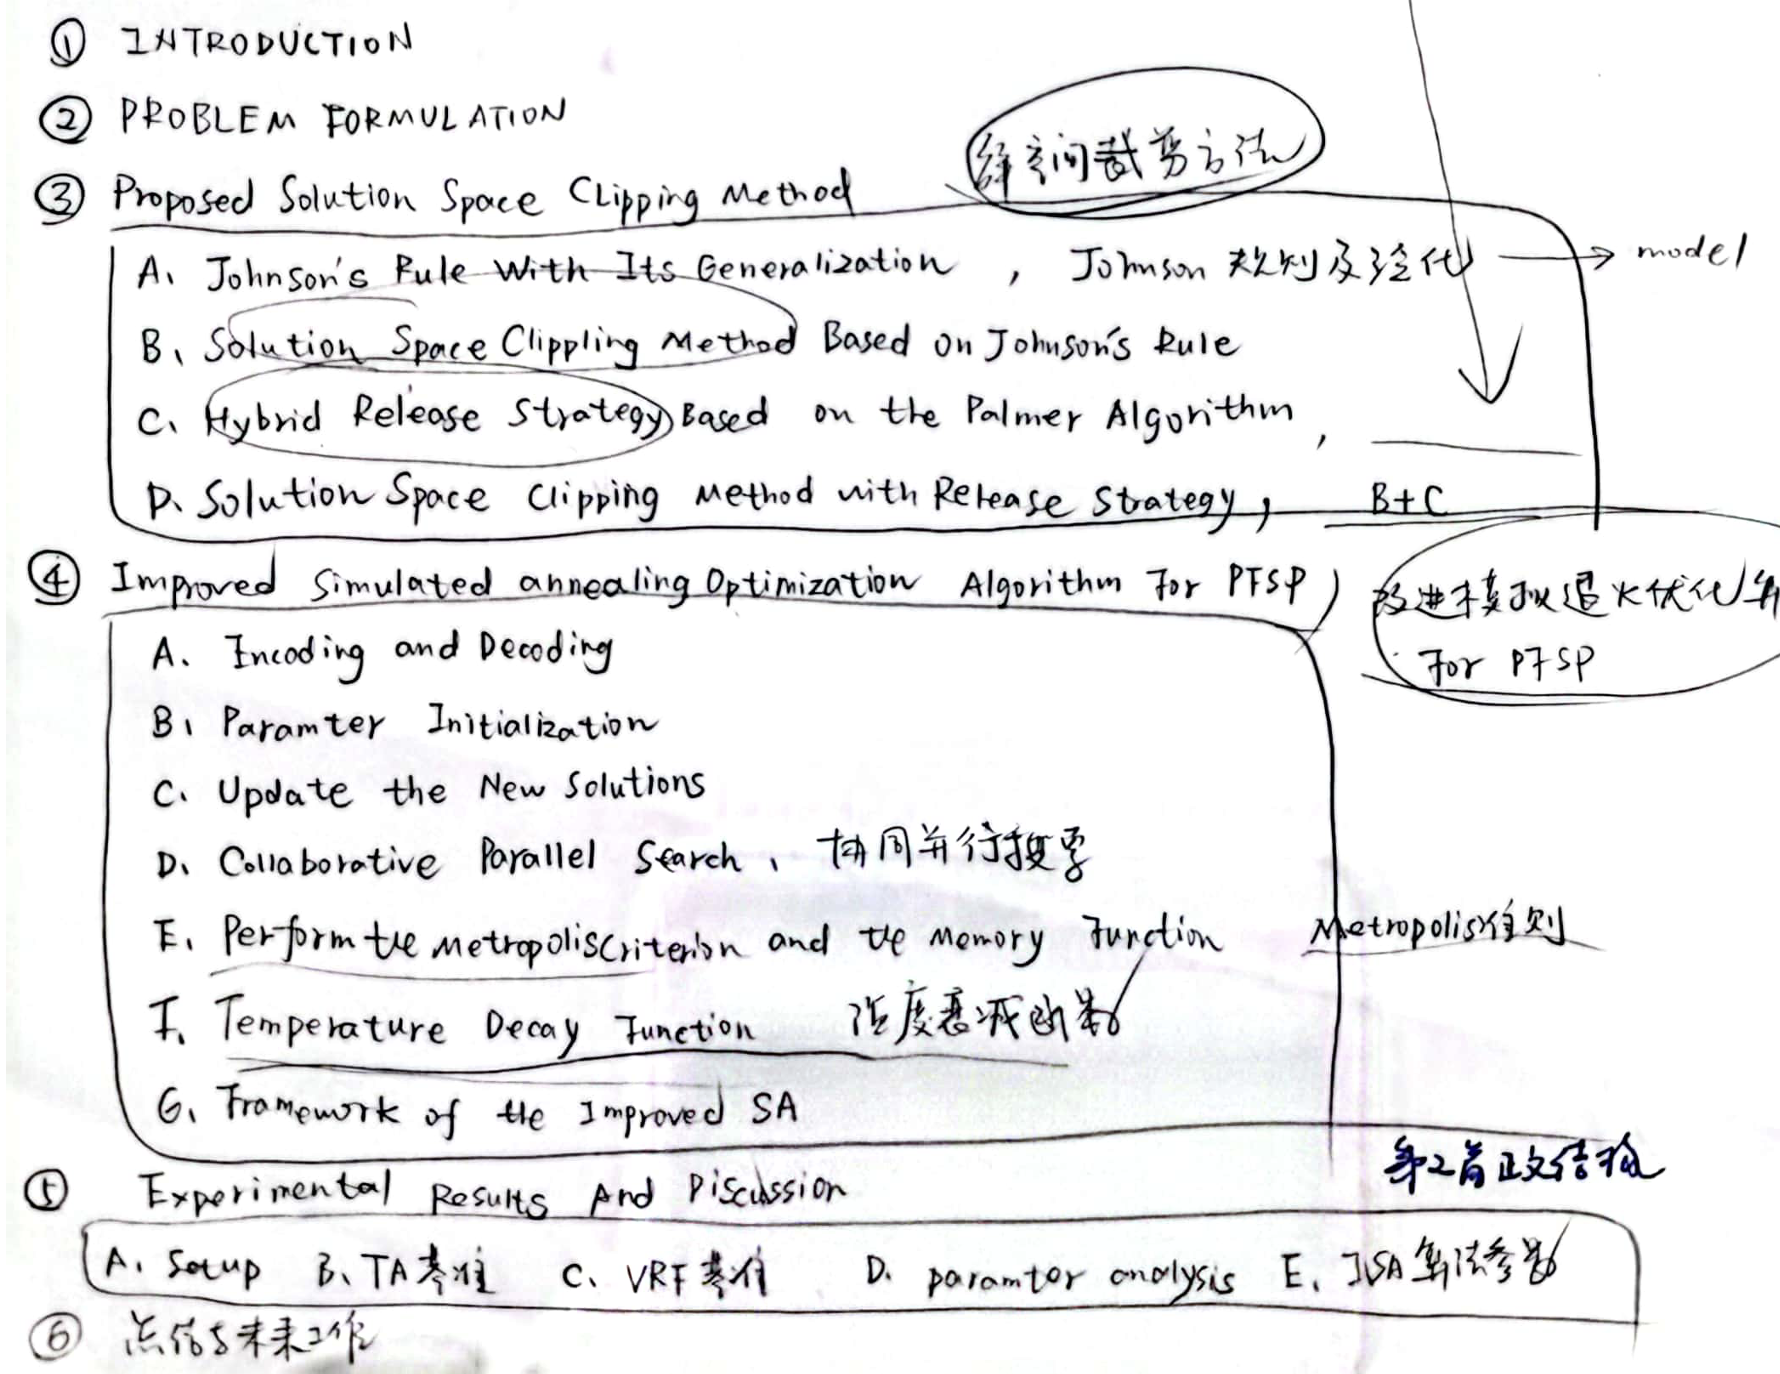 ① INTRODUCTION
② PROBLEM FORMULATION
③ Proposed Solution Space Clipping Method 解空间裁剪方法
A. Johnson's Rule With Its Generalization , Johnson 规则及泛化 → model
B. Solution Space Clippling Method Based on Johnson's Rule
C. Hybrid Release Strategy Based on the Palmer Algorithm ,
D. Solution Space Clipping Method with Release Strategy, B+C
④ Improved Simulated annealing Optimization Algorithm For PFSP
改进模拟退火优化算
For PFSP
A. Encoding and Decoding
B. Paramter Initialization
C. Update the New Solutions
D. Collaborative Parallel Search 、 协同并行搜索
E. Perform the Metropolis Criterion and the Memory Function Metropolis准则
F. Temperature Decay Function 温度衰减函数
G. Framework of the Improved SA
第2篇正文结构
⑤ Experimental Results And Discussion
A. Setup B. TA基准 C. VRF基准 D. paramter analysis E. ISA算法参数
⑥ 总结与未来工作